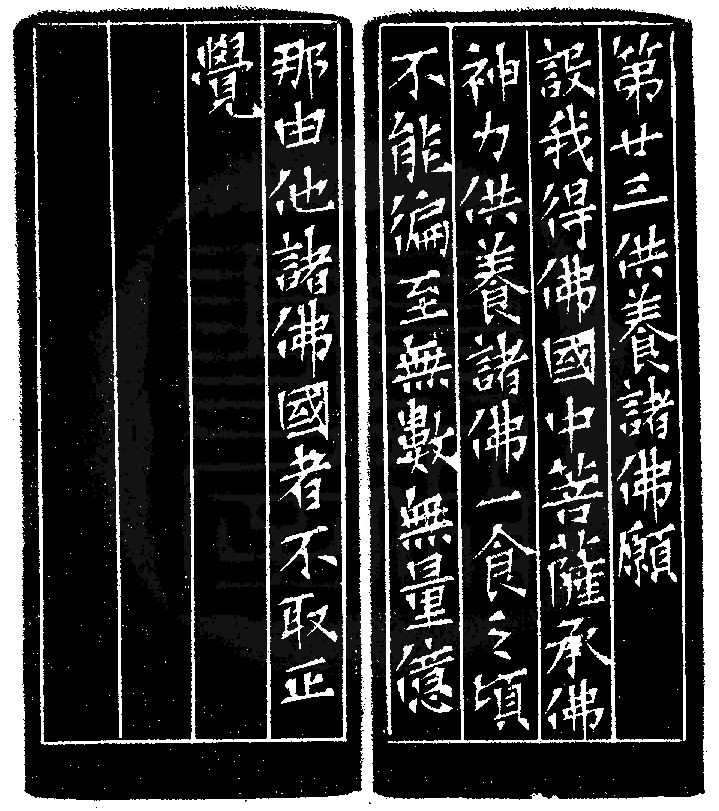 第廿三供養諸佛願
設我得佛國中菩薩承佛
神力供養諸佛一食之頃
不能徧至無數無量億
那由他諸佛國者不取正
覺